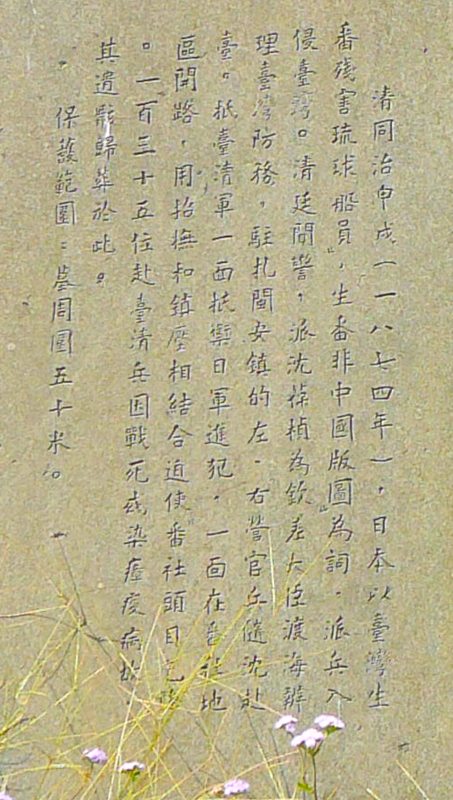 清同治甲戌(一八七四年),日本以臺灣生
番殘害琉球船員",生番非中國版圖"為詞,派兵入
侵臺灣。清廷聞警,派沈葆楨為欽差大臣渡海辦
理臺灣防務,駐扎閩安鎮的左、右營官兵隨沈赴
臺。抵臺清軍一面抵禦日軍進犯,一面在番社地
區開路,用招撫和鎮壓相結合迫使番社頭目
。一百三十五位赴臺清兵因戰死或染瘴疫病故
其遺骸歸葬於此。
保護範圍:墓周圍五十米。